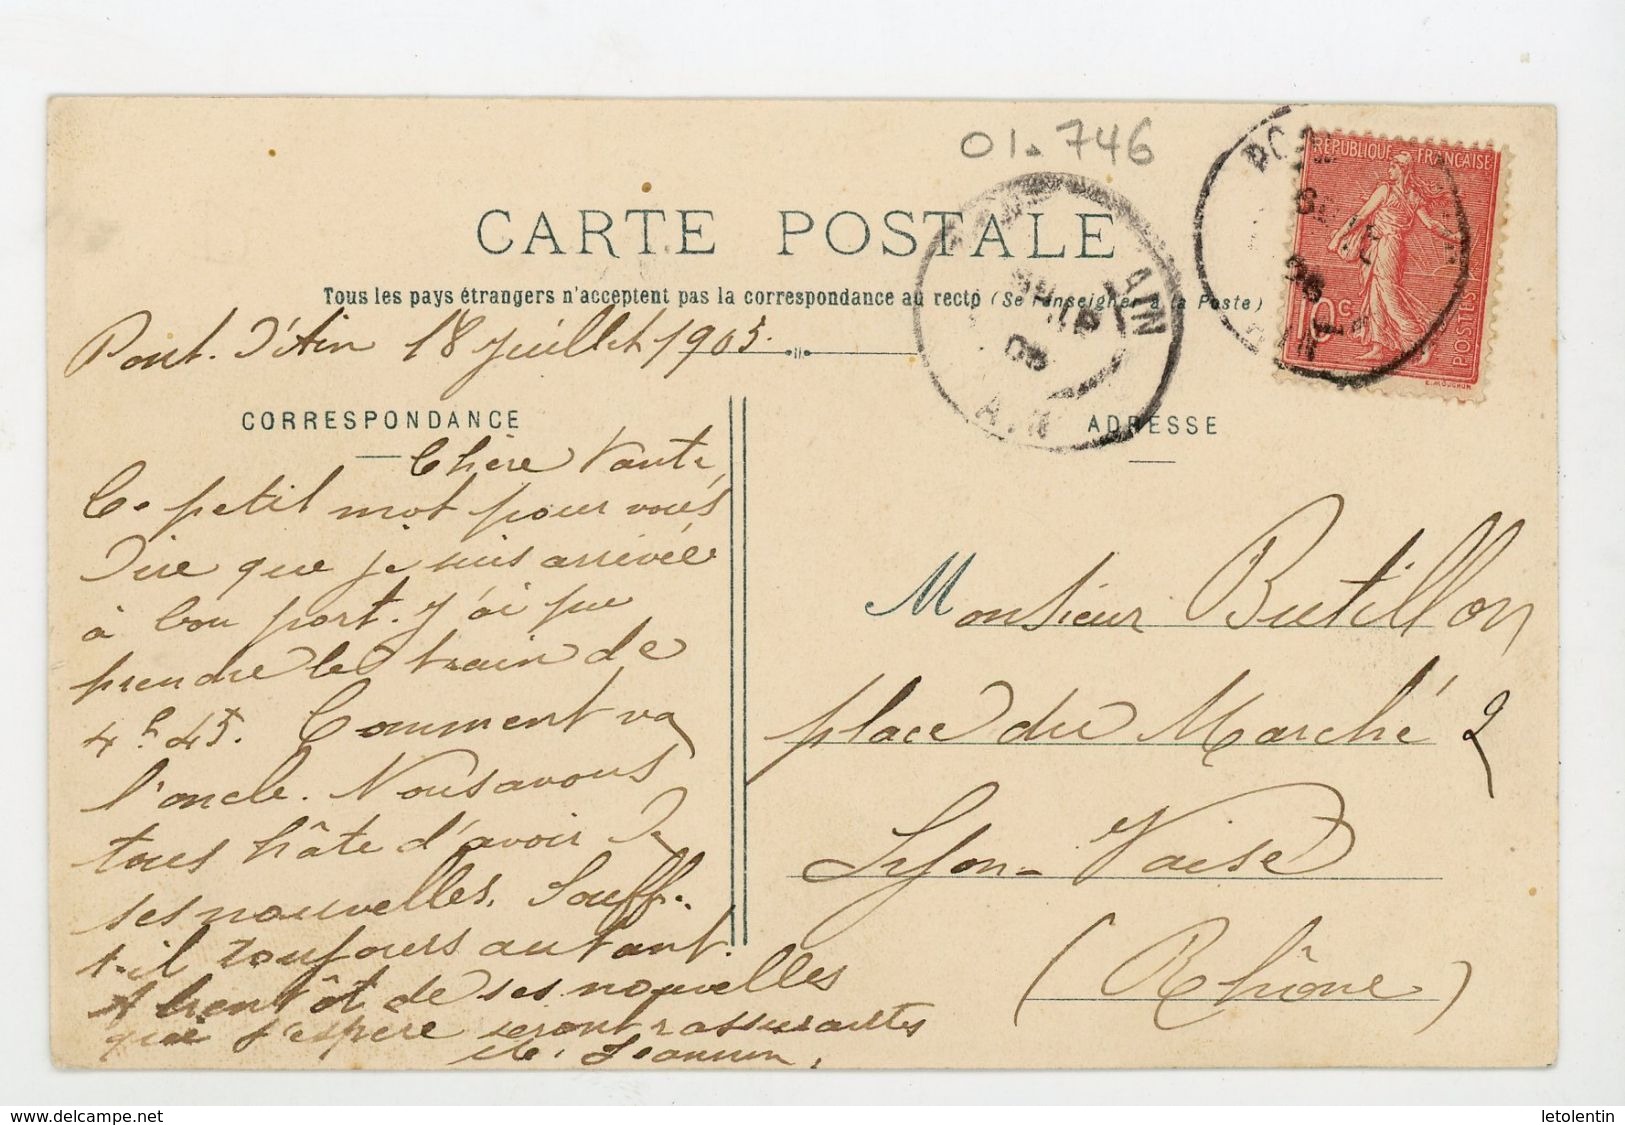 01.746
CARTE POSTALE
Tous les pays étrangers n'acceptent pas la correspondance au recto (Se renseigner à la Poste)
RÉPUBLIQUE FRANÇAISE
10c
POSTES
E. MOUCHON
AIN
05
AIN
Pont. d'Ain 18 Juillet 1905.
CORRESPONDANCE
Chère Tante,
Ce petit mot pour vous
dire que je suis arrivée
à bon port. J'ai pu
prendre le train de
4h 45. Comment va
l'oncle. Nous avons
tous hâte d'avoir de
ses nouvelles. Souff..
t-il toujours autant.
A bientôt de ses nouvelles
que j'espère seront rassurantes
Joannin,
ADRESSE
Monsieur Butillon
place du Marché 2
Lyon-Vaise
(Rhône)
delcampe.net
letolentin